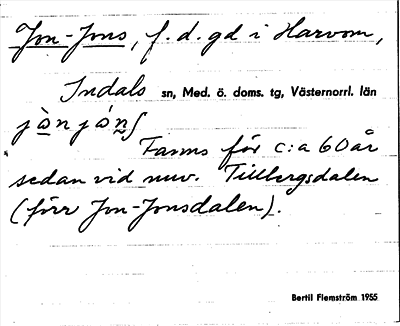 Jon-Jons, f.d. gd i Harvom,
Indals sn, Med. ö. doms. tg, Västernorrl. län
jònjánʃ
Fanns för c:a 60 år
sedan vid nuv. Tillbergsdalen
(förr Jon-Jonsdalen).
Bertil Flemström 1955